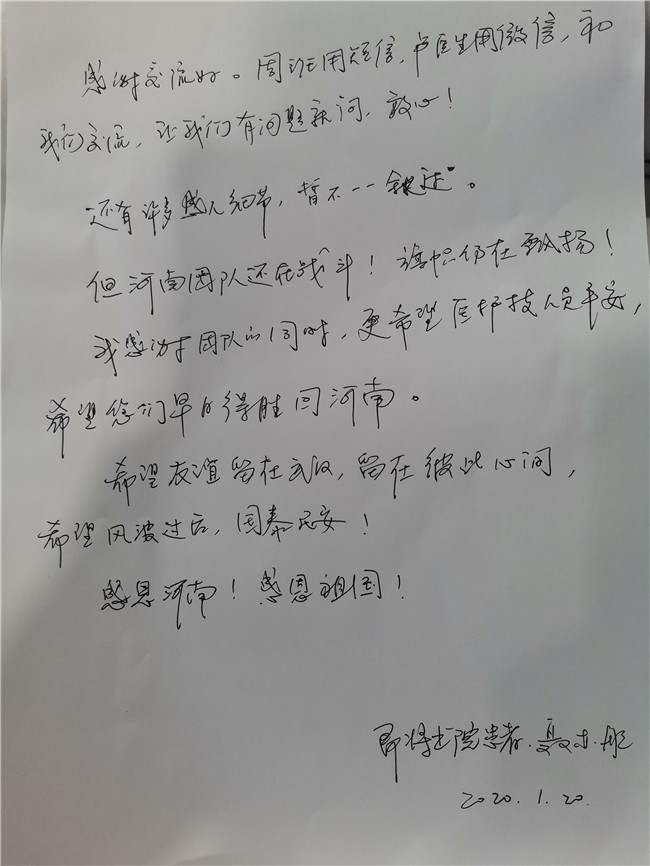 感谢交流好。周班用短信,卢医生用微信,和
我们交流,让我们有问题就问,放心!
还有许多感人细节,暂不一一叙述。
但河南团队还在战斗!旗帜仍在飘扬!
我感谢团队的同时,更希望医护技人员平安,
希望您们早日得胜回河南。
希望友谊留在武汉,留在彼此心间,
希望风波过后,国泰民安!
感恩河南!感恩祖国!
即将出院患者:聂
2020.1.20.